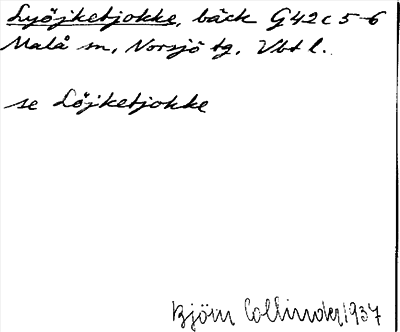 Lyöjketjokke, bäck G42c5-6
Malå sn, Norsjö tg, Vbt l.
se Löjketjokke
Björn Collinder 1937